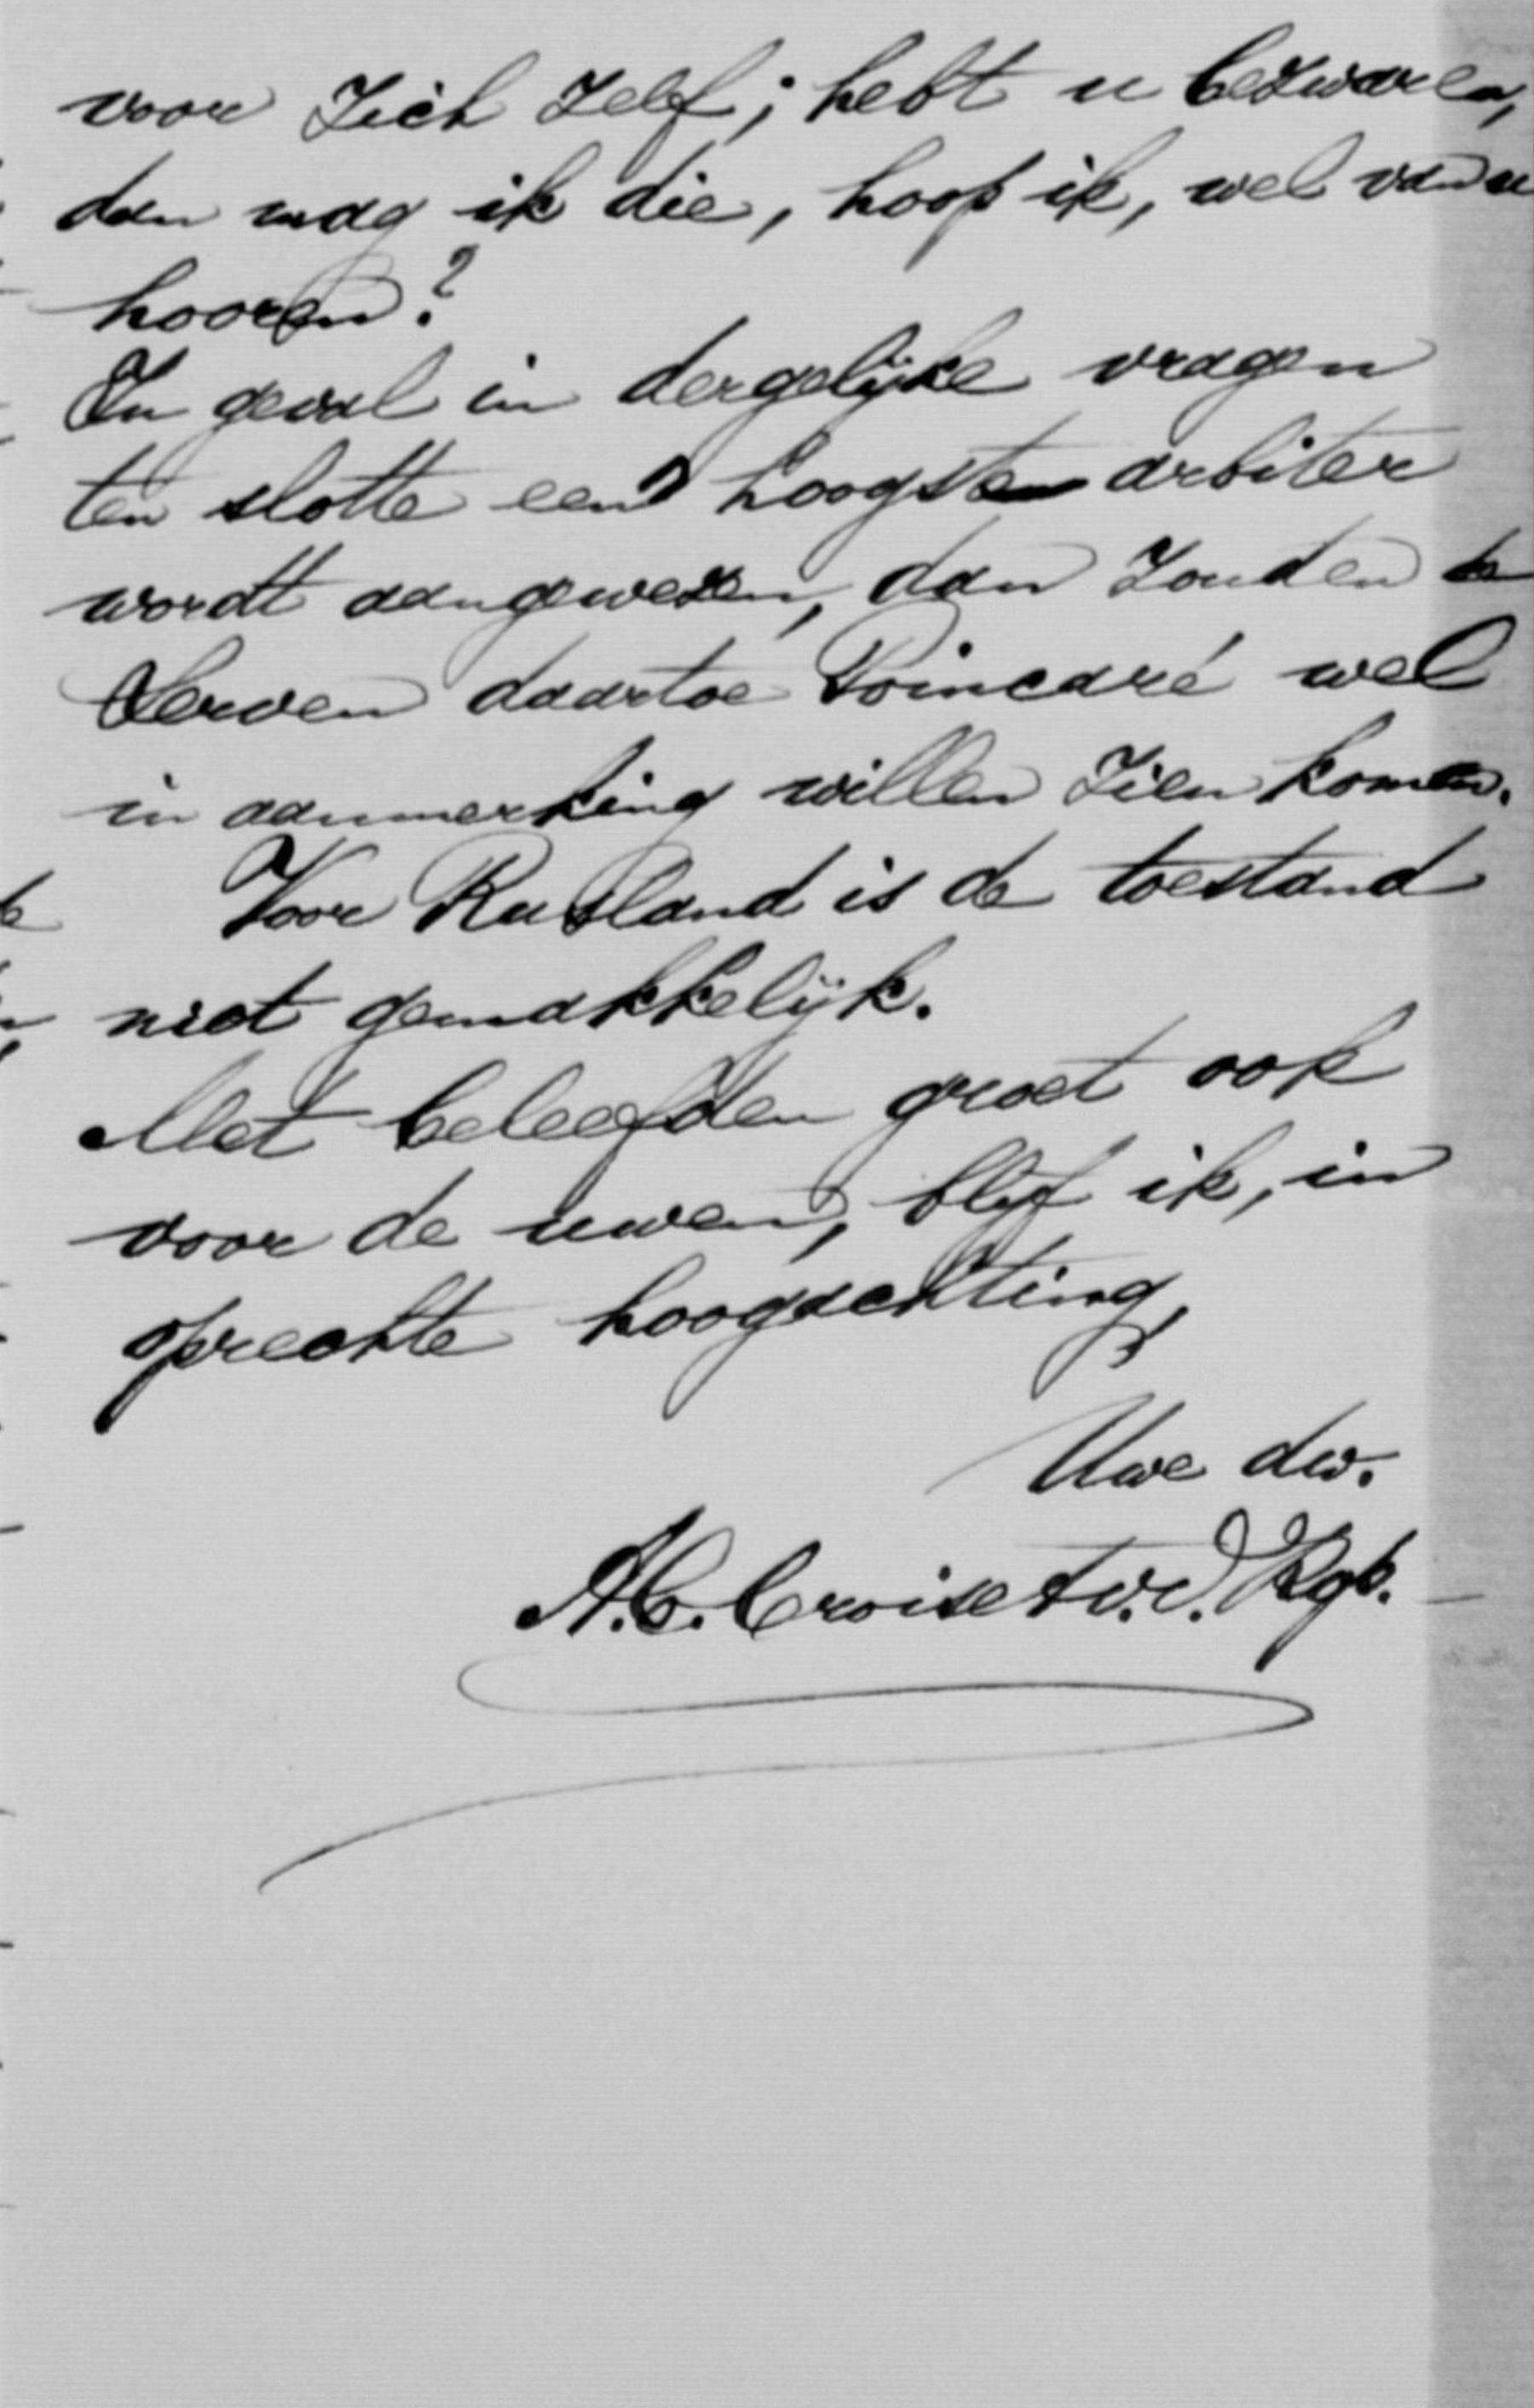 voor zich zelf; hebt u bezwaren,
dan mag ik die, hoop ik, wel van u
hooren?
In geval in dergelijke vragen
ten slotte een hoogsten arbiter
wordt aangewezen, dan zouden de
Serven daartoe Poincaré wel
in aanmerking willen zien komen.
Voor Rusland is de toestand
niet gemakkelijk.
Met beleefden groet ook
voor de uwen, blijf ik, in
oprechte hoogachting,
Uwe dw.
A.C. Croiset v.d.